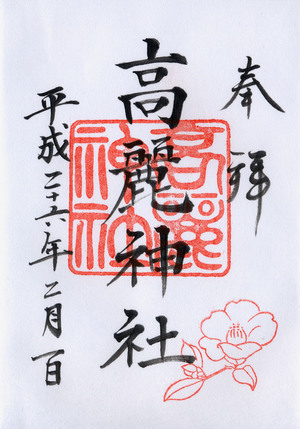 奉拝
高麗神社
高麗神社
平成二十六年二月一日